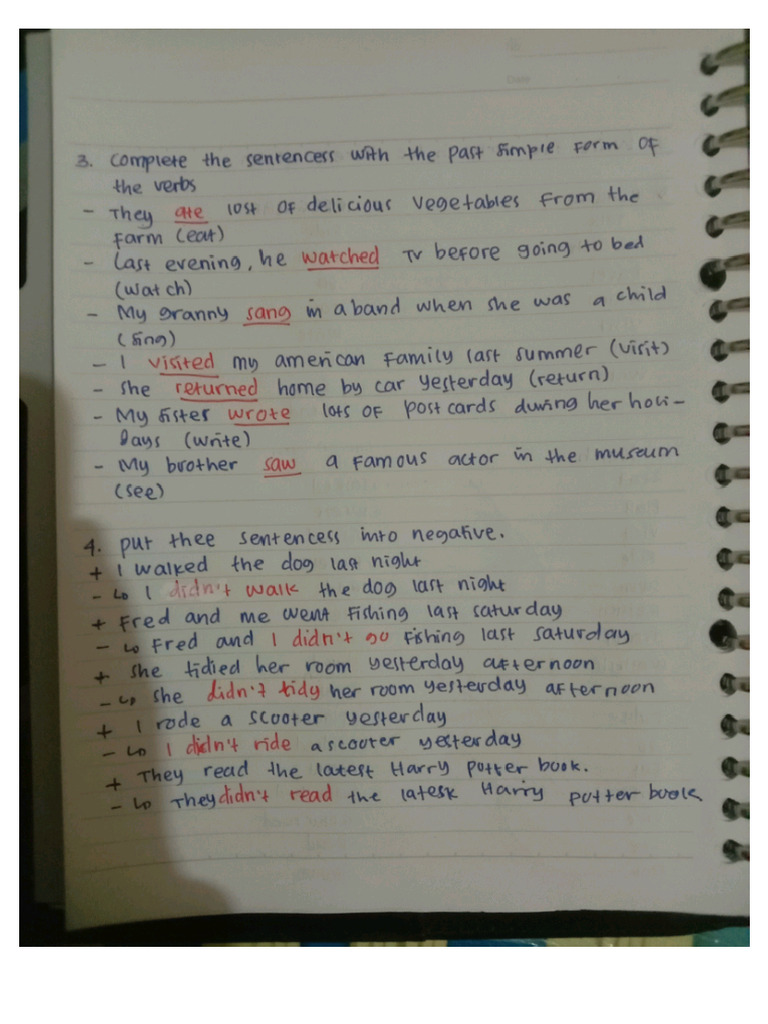 3. complete the sentencess with the past simple form of
the verbs
- They ate lost of delicious vegetables from the
farm (eat)
- Last evening, he watched TV before going to bed
(watch)
- My granny sang in a band when she was a child
(sing)
- I visited my american family last summer (visit)
- she returned home by car yesterday (return)
- My sister wrote lots of post cards during her holi-
days (write)
- My brother saw a famous actor in the museum
(see)
4. put thee sentencess into negative.
+ I walked the dog last night
- ↳ I didn't walk the dog last night
+ Fred and me went fishing last saturday
- ↳ Fred and I didn't go fishing last saturday
+ she tidied her room yesterday afternoon
- ↳ she didn't tidy her room yesterday afternoon
+ I rode a scooter yesterday
- ↳ I didn't ride a scooter yesterday
+ They read the latest Harry potter book.
- ↳ They didn't read the latest Harry potter book